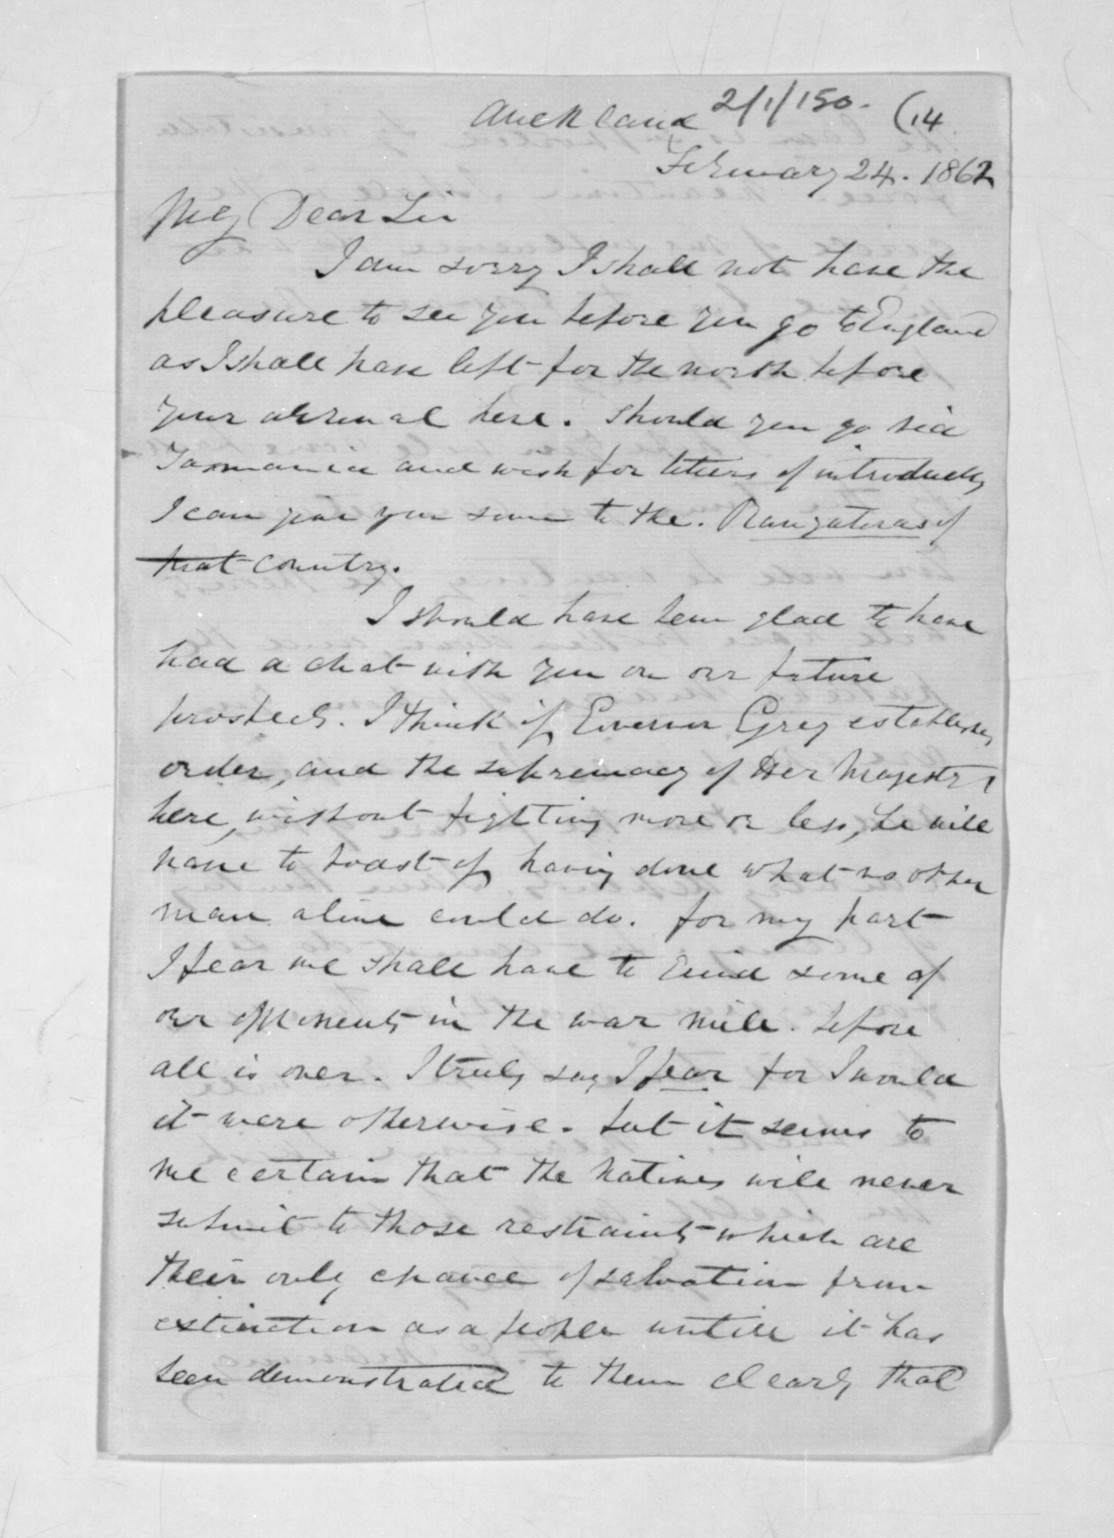 Auckland 2/1/150. (14
February 24. 1862
My Dear Sir
I am sorry I shall not have the
pleasure to see you before you go to England
as I shall have left for the north before
your arrival here. Should you go via
Tasmania and wish for letters of introduction
I can give you some to the. Rangatiras of
that country.
I should have been glad to have
had a chat with you on our future
prospects. I think if Governor Grey establishes
order, and the supremacy of Her Majesty
here, without fighting more or less, he will
have to boast of having done what no other
man alive could do. for my part
I fear we shall have to grind some of
our opponents in the war mill. before
all is over. I truly say I fear for I would
it were otherwise. but it seems to
me certain that the Natives will never
submit to those restraints which are
their only chance of salvation from
extinction as a people untill it has
been demonstrated to them clearly that